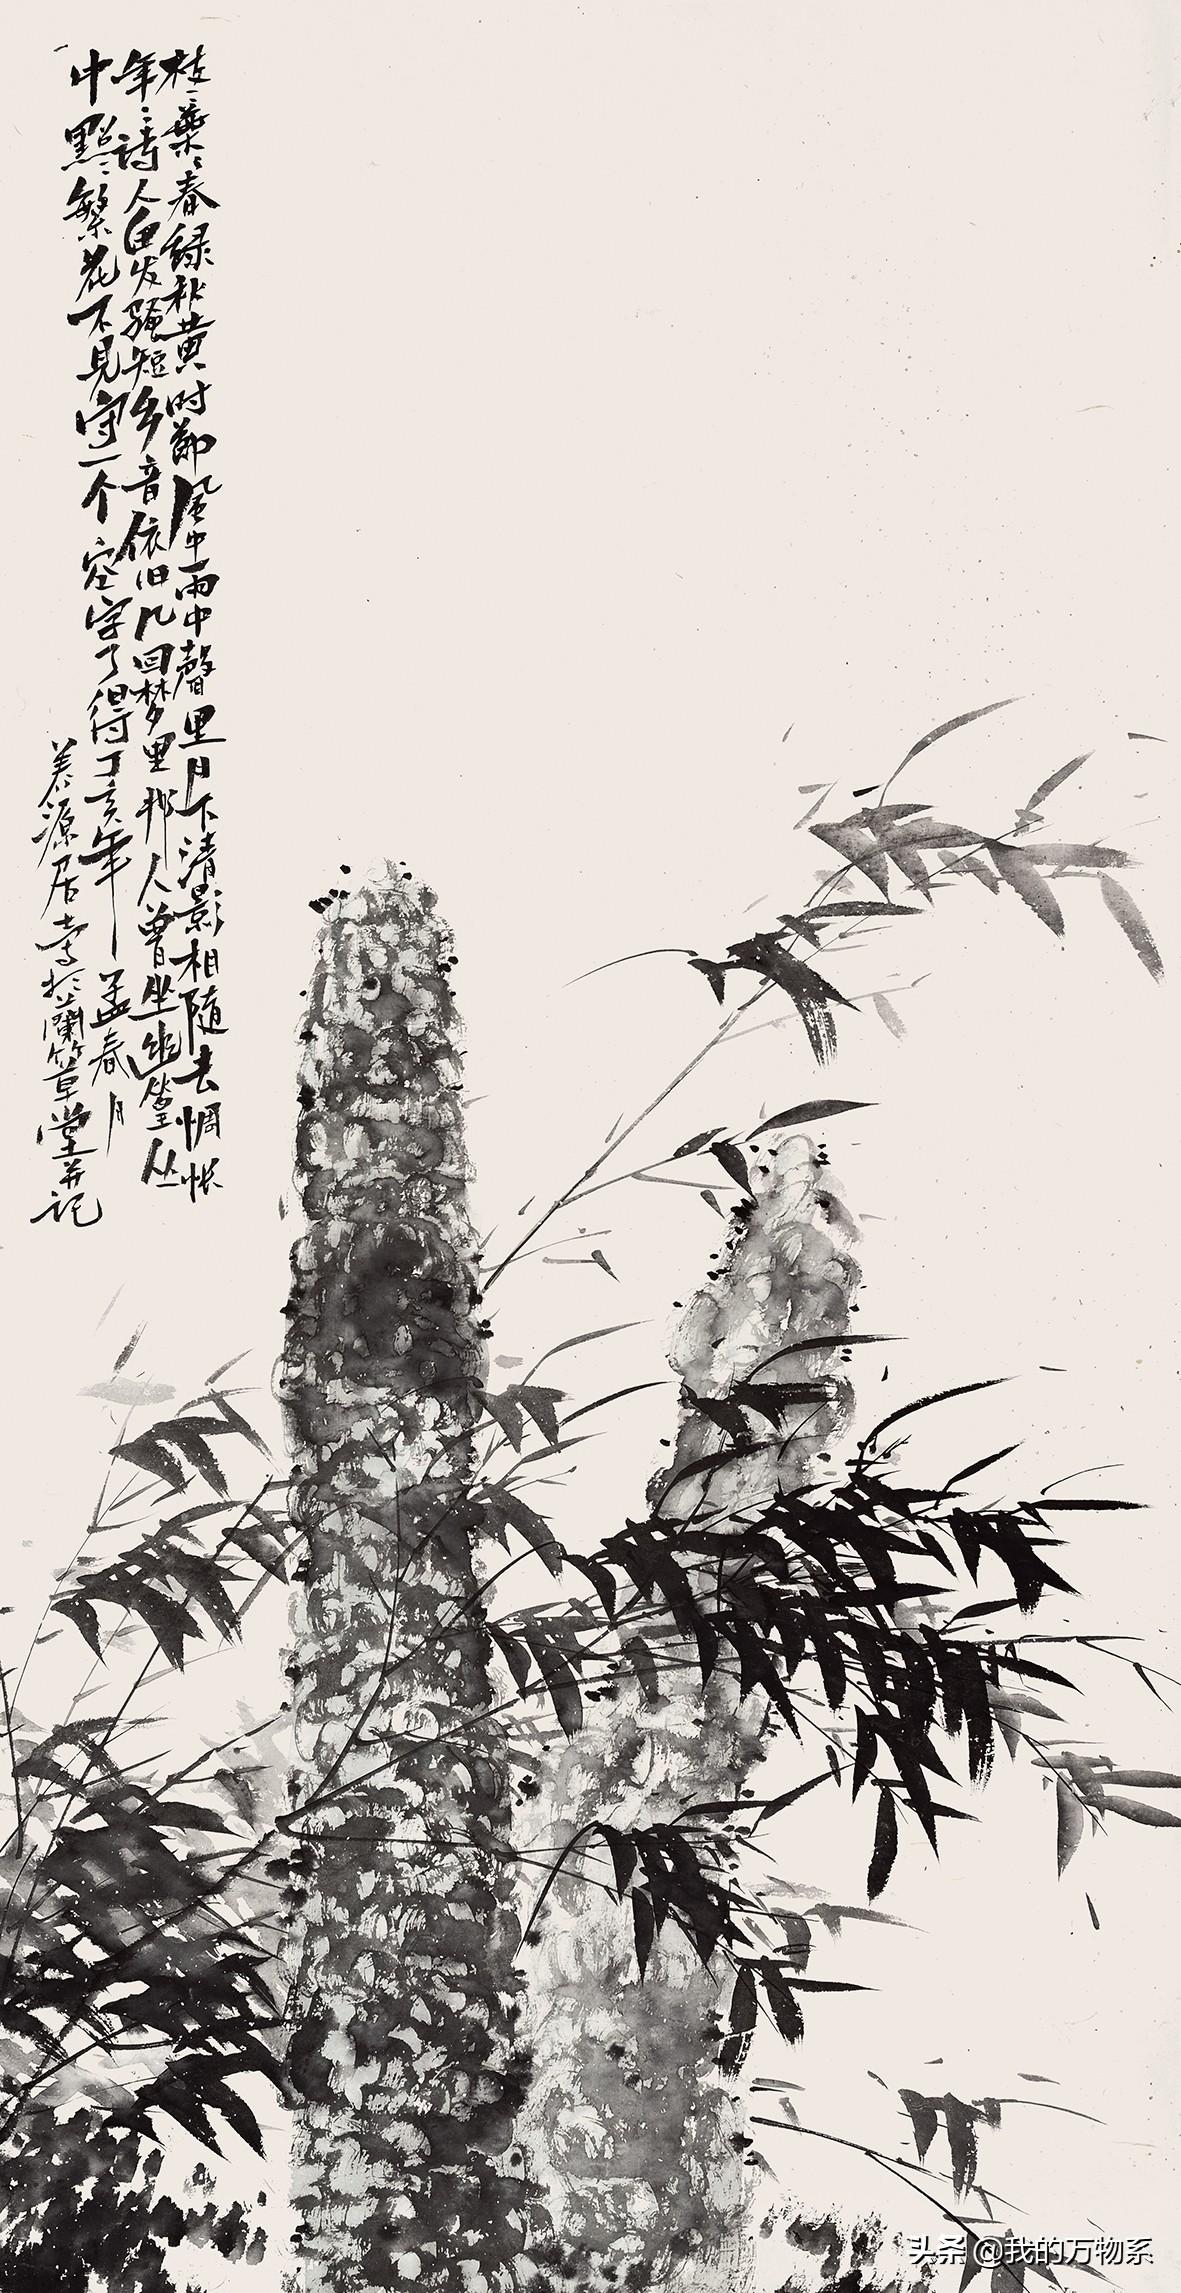 枝〻叶〻春绿秋黄时节风中雨中声里月下清影相随去惆怅
年〻诗人白发骚短乡音依旧几回梦里那人曾坐幽篁丛
中点〻繁花不见守一个空字了得丁亥年孟春月
慕源居士写于兰竹草堂并记
头条 @我的万物系